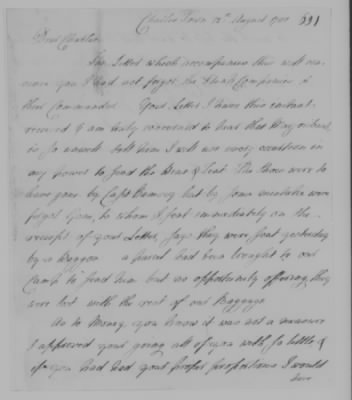 Charles Town 12th August 17 331
Dear Charles
The Letter which accompanies this will con
vince you I had not forgot the Compensation &
their Commander. Your Letter I have this instant
received & am truly concerned to hear that
is so unwell tell him I will use every exertion in
my power to send the & The Shoes were to
have gone by Capt but by some mistake were
forgot, to whom I sent immediately on the
receipt of your Letter, says they were sent yesterday
by a Waggon. a had been brought to our
Camp to send him but no opportunity offering they
were lost with the rest of our Baggage
As to Money, you know it was not a measure
I approved your going all of you with so little &
if you had had your proper proportions I would
have